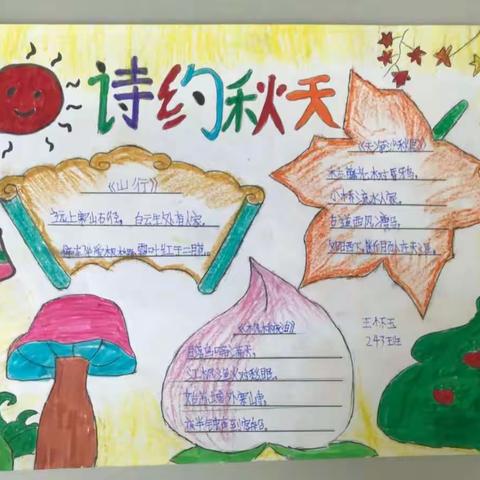 诗约秋天
《山行》
远上寒山石径,白云生处有人家。
停车坐爱枫林晚,霜叶红于二月花。
《天净沙秋思》
枯藤老树昏鸦,
小桥流水人家,
古道西风瘦马。
夕阳西下,断肠人在天涯。
《枫桥夜泊》
月落乌啼霜满天,
江枫渔火对愁眠。
姑苏城外寒山寺,
夜半钟声到客船。
243班